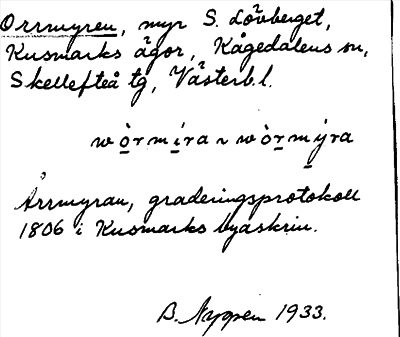 Orrmyren, myr S. Lövberget,
Kusmarks ägor, Kågedalens sn,
Skellefteå tg, Västerb.l.
wò̲rmí̲ra ~ wòr̲mý̲ra
Årrmyran, graderingsprotokoll
1806 i Kusmarks byaskrin.
B. Nyppen 1933.